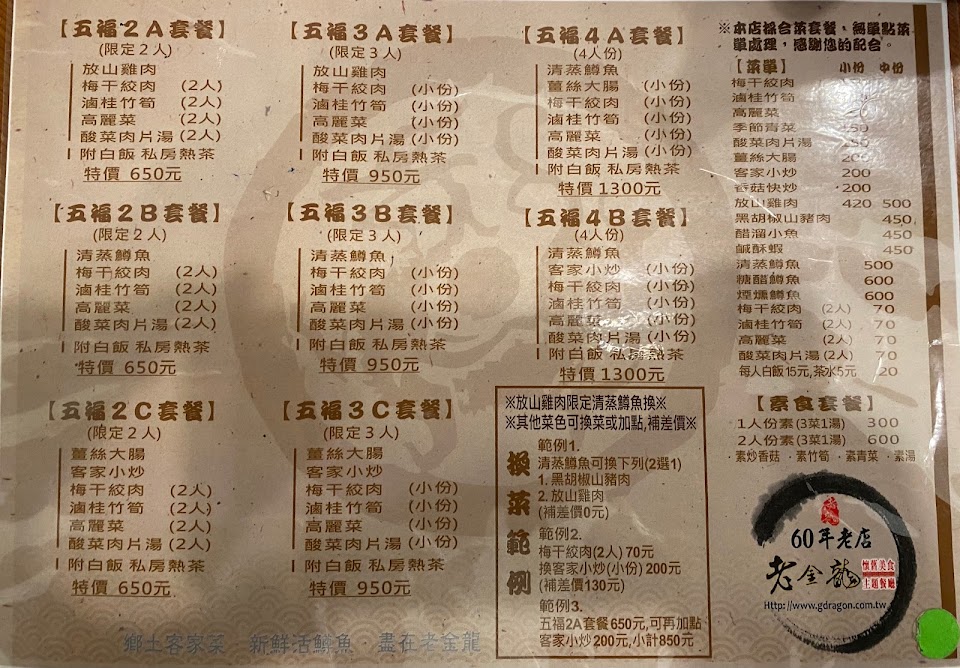 【五福2A套餐】
(限定2人)
放山雞肉
梅干絞肉 (2人)
滷桂竹筍 (2人)
高麗菜 (2人)
酸菜肉片湯 (2人)
附白飯 私房熱茶
特價 650元
【五福3A套餐】
(限定3人)
放山雞肉
梅干絞肉 (小份)
滷桂竹筍 (小份)
高麗菜 (小份)
酸菜肉片湯 (小份)
附白飯 私房熱茶
特價 950元
【五福4A套餐】
(4人份)
清蒸鱒魚
薑絲大腸 (小份)
梅干絞肉 (小份)
滷桂竹筍 (小份)
高麗菜 (小份)
酸菜肉片湯 (小份)
附白飯 私房熱茶
特價 1300元
【五福2B套餐】
(限定2人)
清蒸鱒魚
梅干絞肉 (2人)
滷桂竹筍 (2人)
高麗菜 (2人)
酸菜肉片湯 (2人)
附白飯 私房熱茶
特價 650元
【五福3B套餐】
(限定3人)
清蒸鱒魚
梅干絞肉 (小份)
滷桂竹筍 (小份)
高麗菜 (小份)
酸菜肉片湯 (小份)
附白飯 私房熱茶
特價 950元
【五福4B套餐】
(4人份)
清蒸鱒魚
客家小炒 (小份)
梅干絞肉 (小份)
滷桂竹筍 (小份)
高麗菜 (小份)
酸菜肉片湯 (小份)
附白飯 私房熱茶
特價 1300元
【五福2C套餐】
(限定2人)
薑絲大腸
客家小炒
梅干絞肉 (2人)
滷桂竹筍 (2人)
高麗菜 (2人)
酸菜肉片湯 (2人)
附白飯 私房熱茶
特價 650元
【五福3C套餐】
(限定3人)
薑絲大腸
客家小炒
梅干絞肉 (小份)
滷桂竹筍 (小份)
高麗菜 (小份)
酸菜肉片湯 (小份)
附白飯 私房熱茶
特價 950元
※放山雞肉限定清蒸鱒魚換※
※其他菜色可換菜或加點,補差價※
換菜範例
範例1.
清蒸鱒魚可換下列(2選1)
1. 黑胡椒山豬肉
2. 放山雞肉
(補差價0元)
範例2.
梅干絞肉(2人) 70元
換客家小炒(小份) 200元
(補差價130元)
範例3.
五福2A套餐650元,可再加點
客家小炒200元,小計850元
※本店採合菜套餐，無單點菜
單處理，感謝您的配合。
【菜單】 小份 中份
梅干絞肉
滷桂竹筍
高麗菜
季節青菜
酸菜肉片湯
薑絲大腸 200
客家小炒 200
香菇快炒 200
放山雞肉 420 500
黑胡椒山豬肉 450
醋溜小魚 450
鹹酥蝦 450
清蒸鱒魚 500
糖醋鱒魚 600
煙燻鱒魚 600
梅干絞肉 (2人) 70
滷桂竹筍 (2人) 70
高麗菜 (2人) 70
酸菜肉片湯 (2人) 70
每人白飯15元,茶水5元 20
【素食套餐】
1人份素(3菜1湯) 300
2人份素(3菜1湯) 600
·素炒香菇 ·素竹筍 ·素青菜 ·素湯
60年老店
老金龍
懷舊美食
主題餐廳
Http://www.gdragon.com.tw
鄉土客家菜 新鮮活鱒魚·盡在老金龍